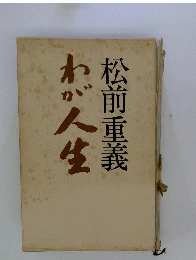 松前重義
わが人生